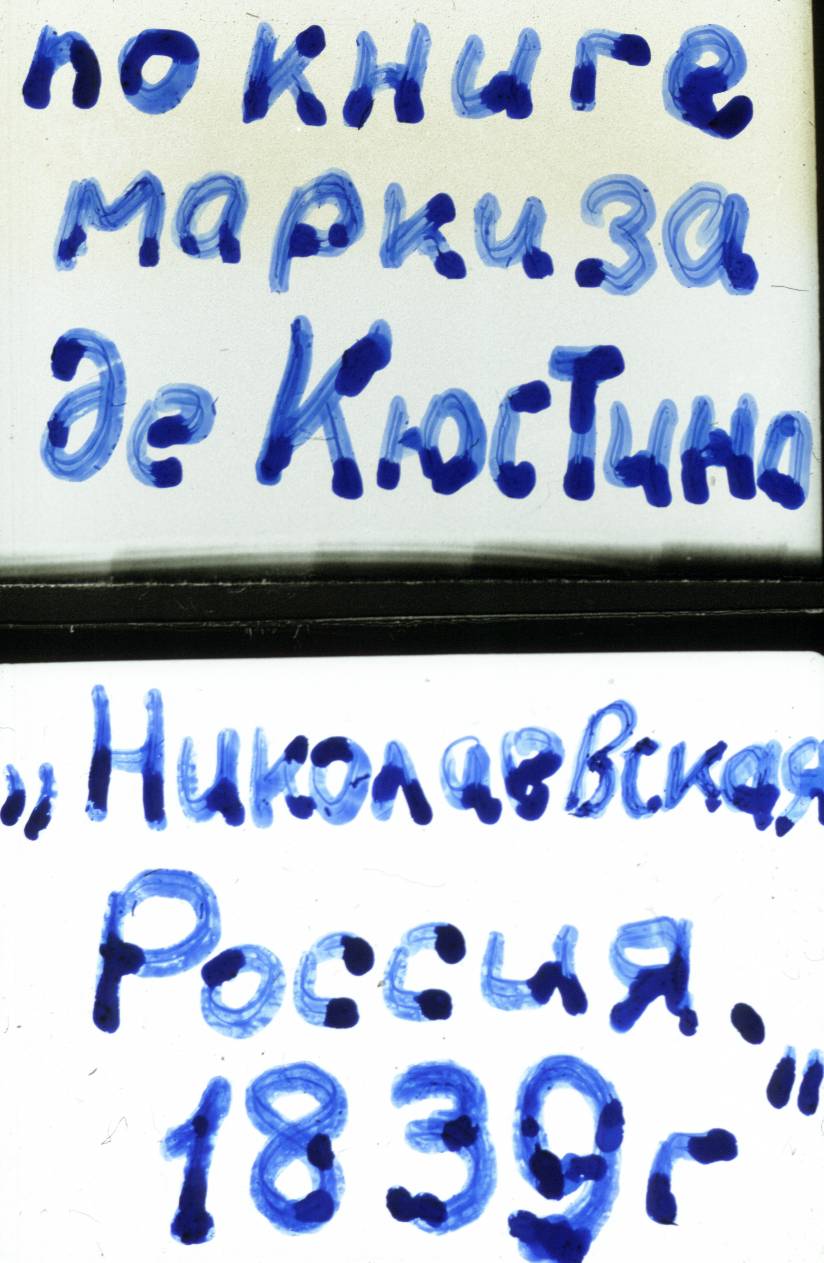 по книге
маркиза
де Кюстина
„Николаевская
Россия."
1839г